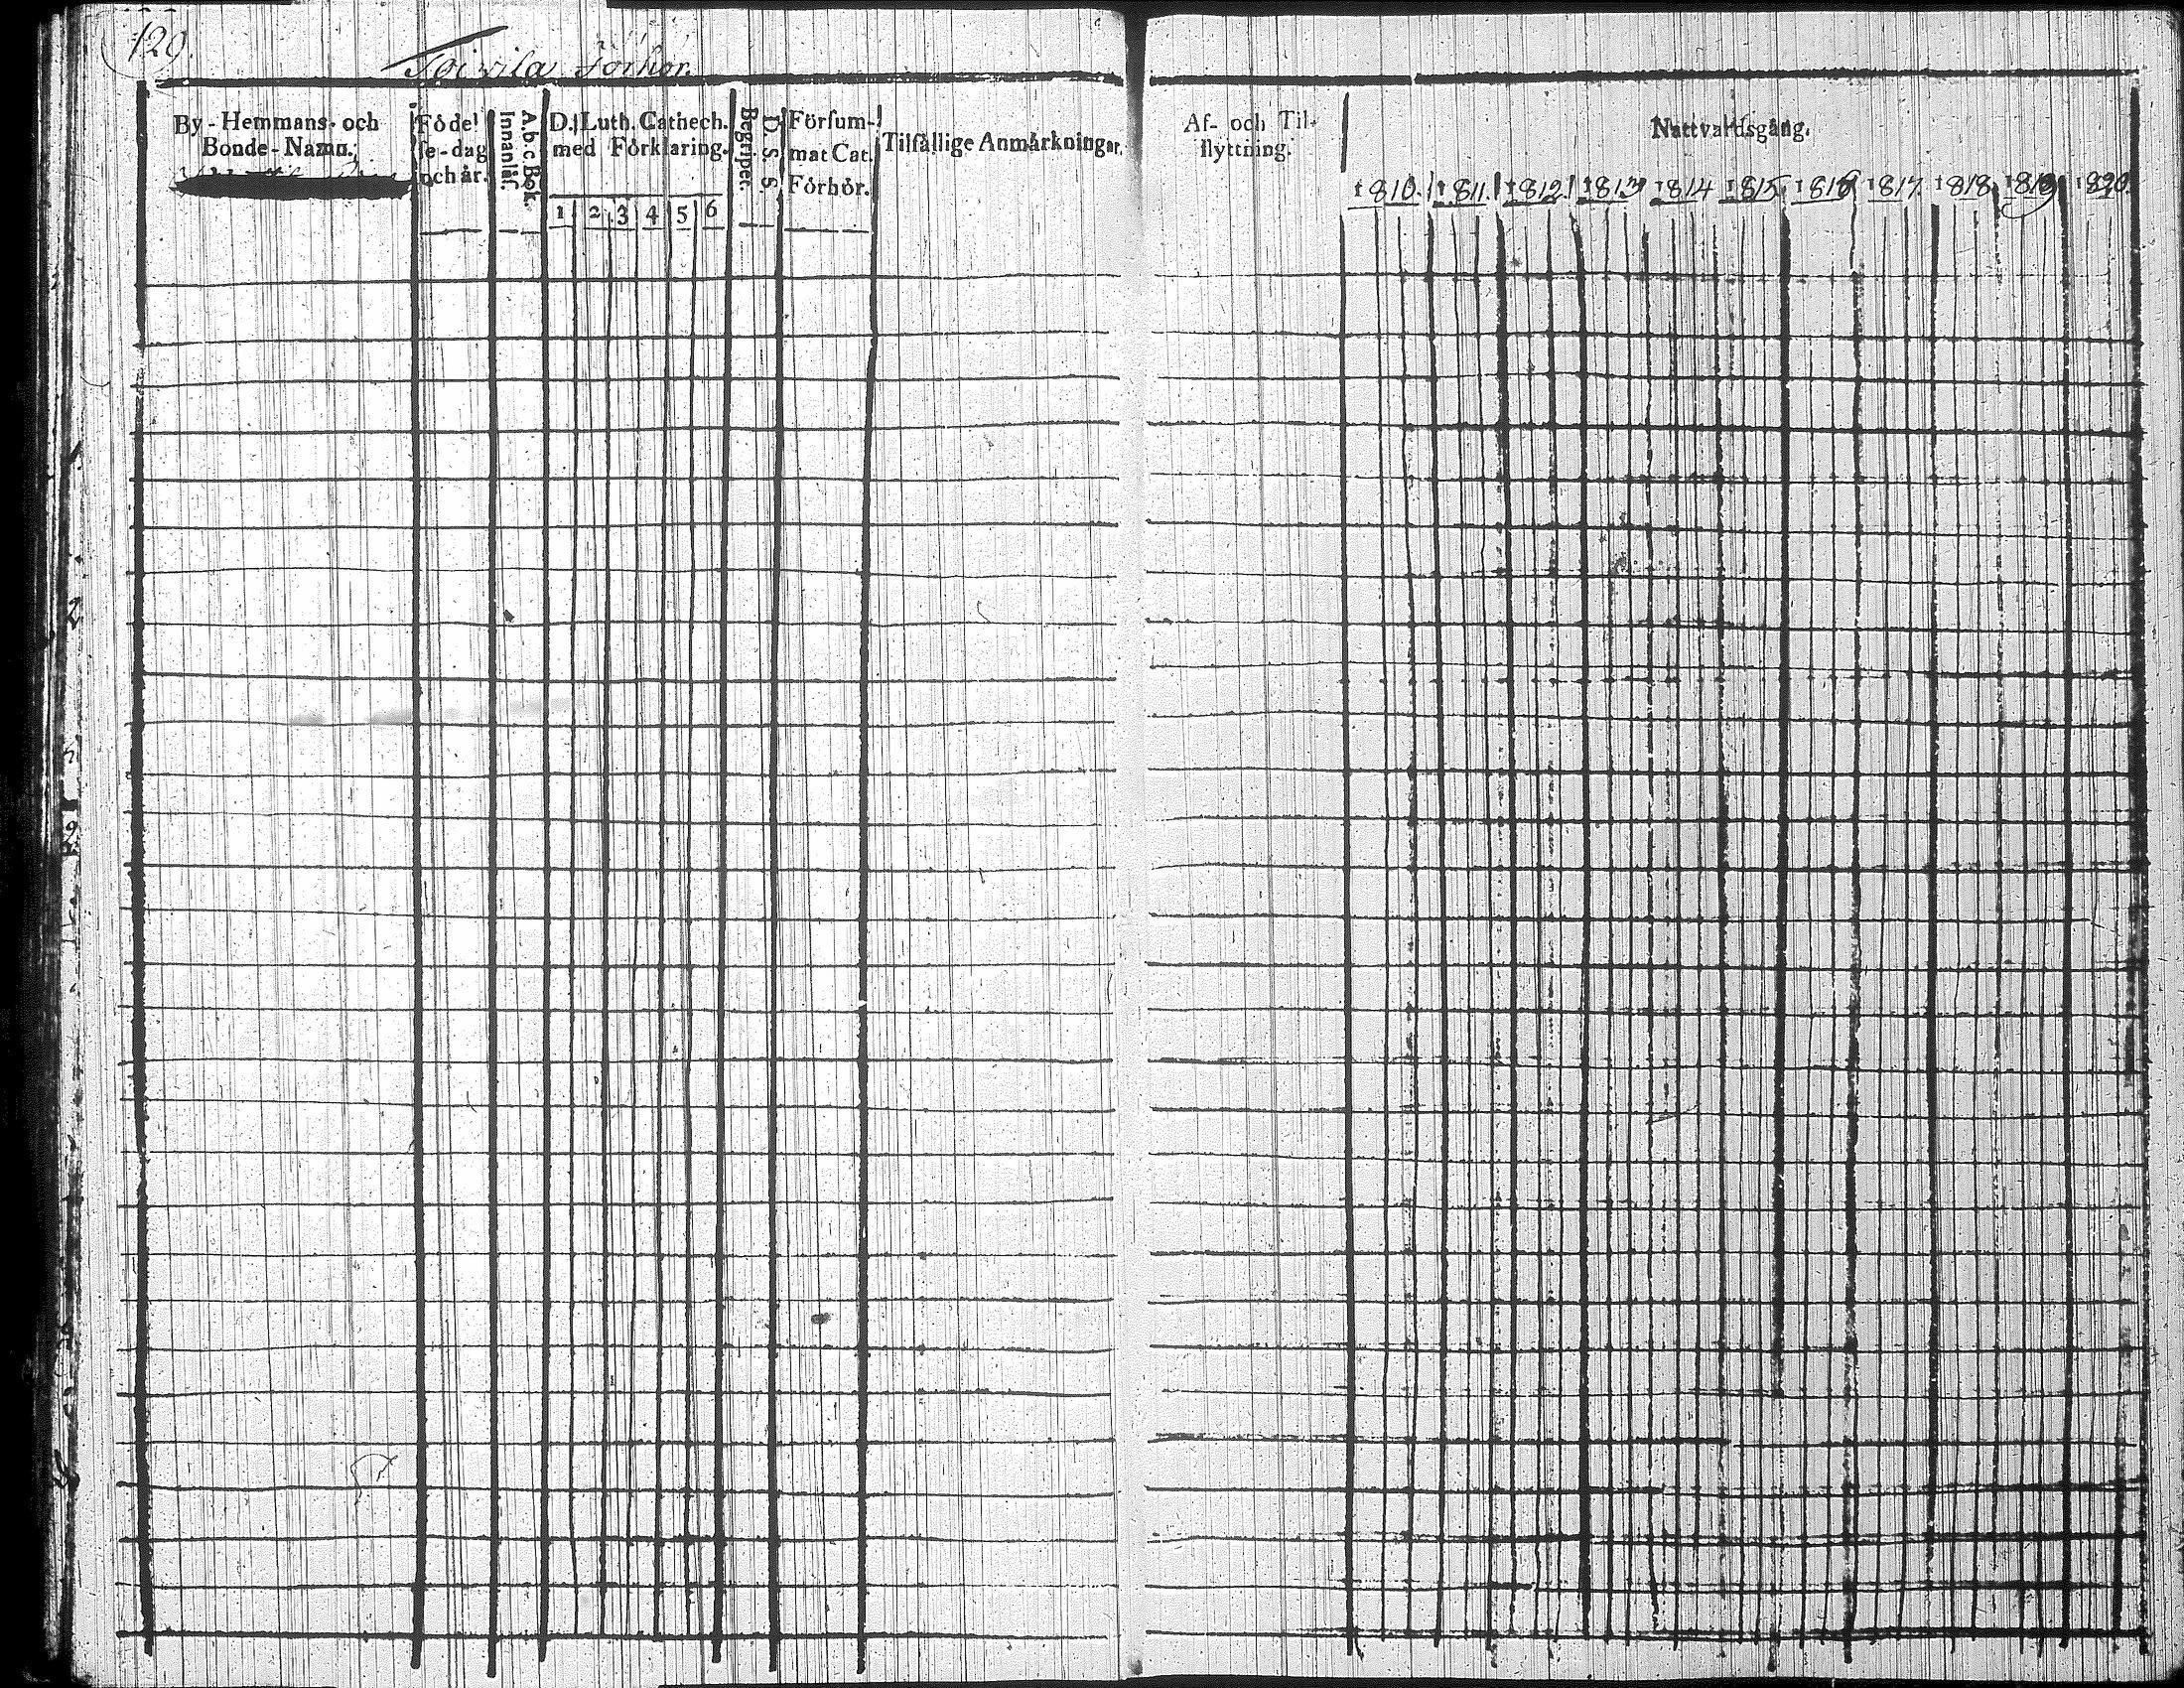 129.
Toivila förhör.
By-Hemmans- och
Bonde-Namn.
Födel
se-dag
och år.
A.b.c.Bok.
Innanläs.
D. Luth. Cathech.
med Förklaring.
1 2 3 4 5 6
Begriper.
D. S. S.
Försum-
mat Cat.
Förhör.
Tilfällige Anmärkningar.
Af- och Til-
flyttning.
Nattvardsgång.
1810. 1811. 1812. 1813 1814 1815 1816 1817. 1818. 1819 1820.